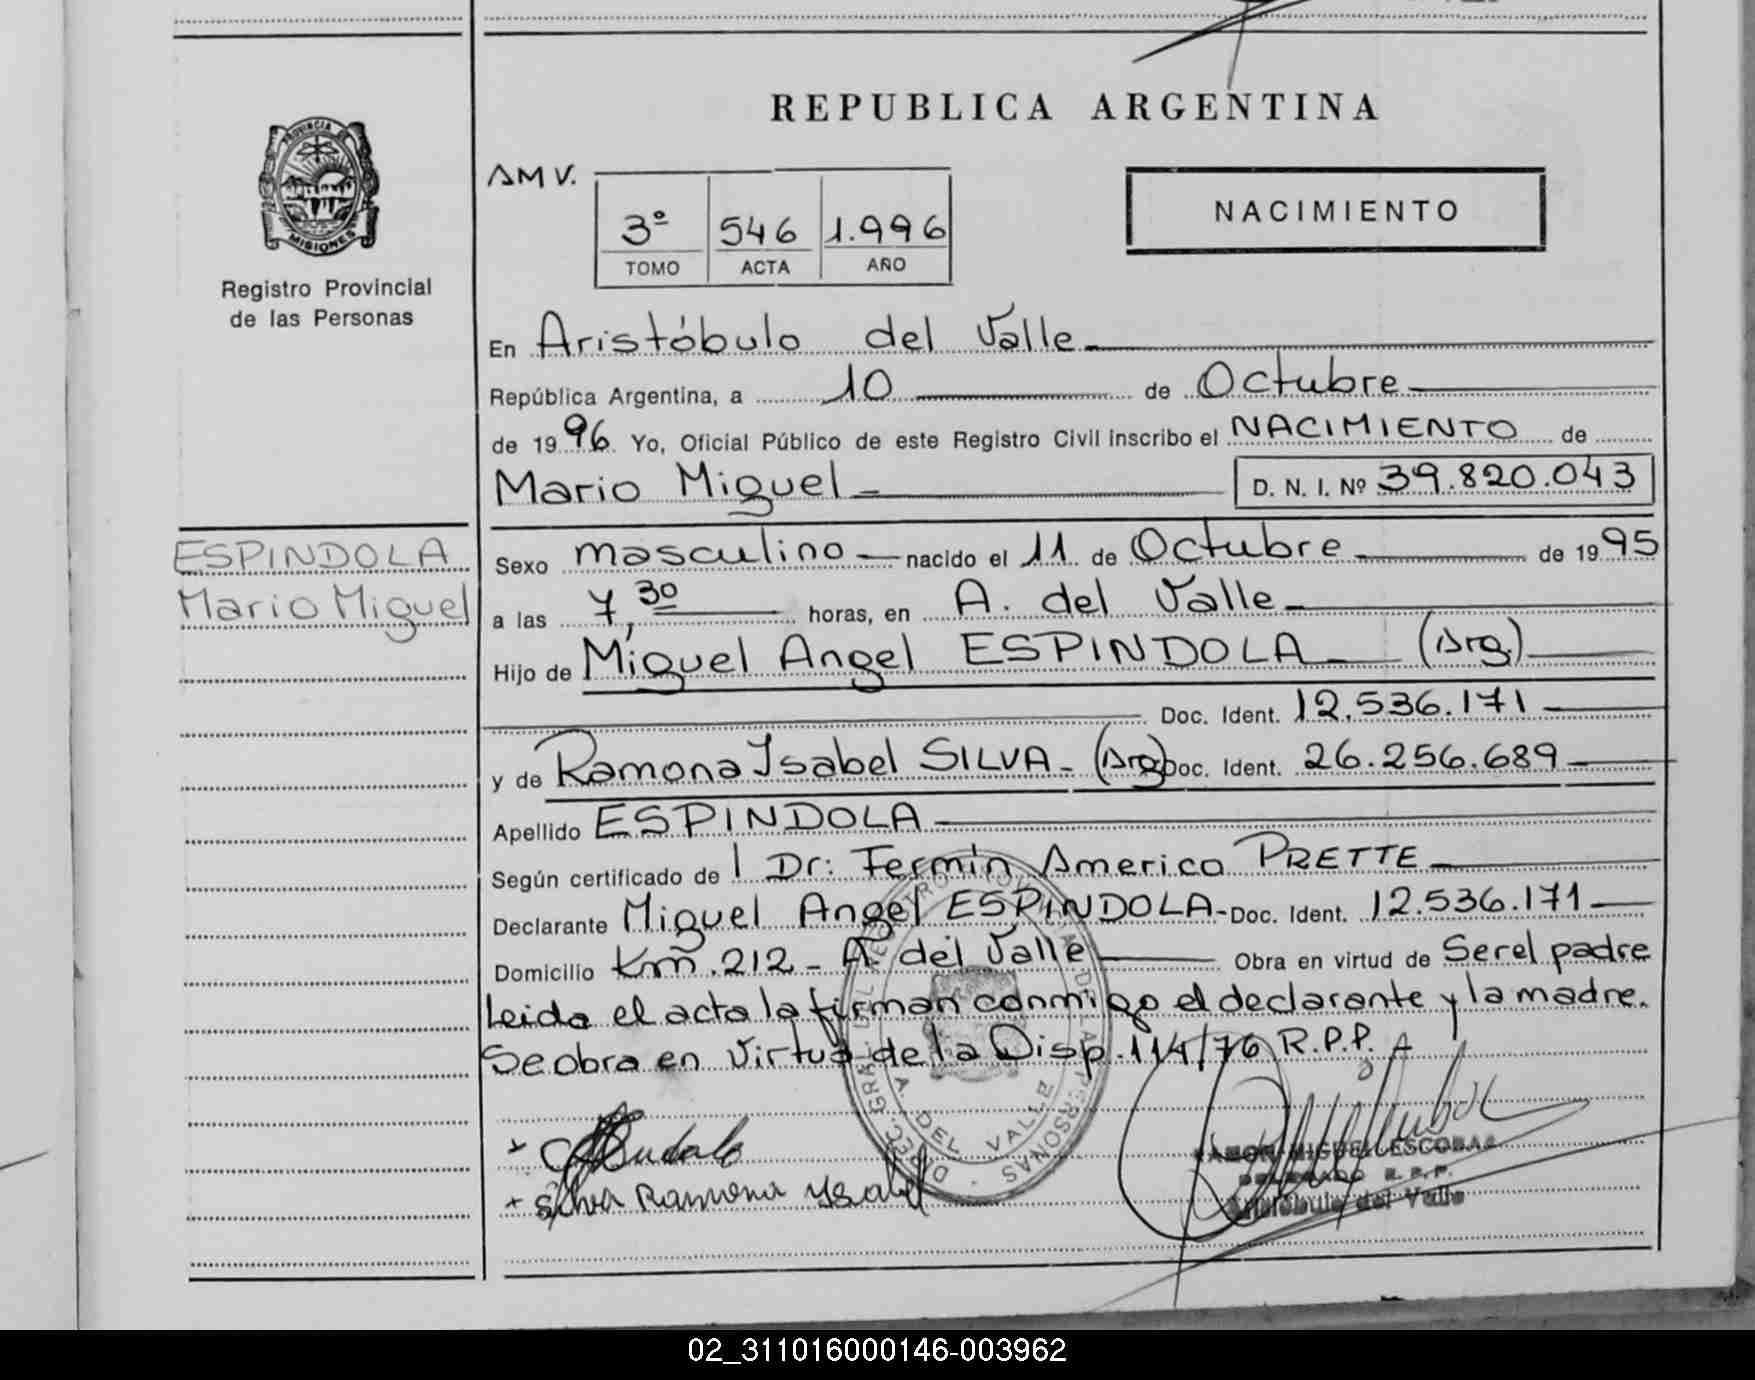 REPUBLICA ARGENTINA
PROVINCIA DE
MISIONES
Registro Provincial
de las Personas
AMV.
3º 546 1.996
TOMO ACTA AÑO
NACIMIENTO
En Aristóbulo del Valle
República Argentina, a 10 de Octubre
de 1996 Yo, Oficial Público de este Registro Civil inscribo el NACIMIENTO de
Mario Miguel D. N. I. Nº 39.820.043
ESPINDOLA
Mario Miguel
Sexo masculino nacido el 11 de Octubre de 1995
a las 7,30 horas, en A. del Valle
Hijo de Miguel Angel ESPINDOLA (Arg.)
Doc. Ident. 12.536.171
y de Ramona Ysabel SILVA (Arg) Doc. Ident. 26.256.689
Apellido ESPINDOLA
Según certificado de Dr: Fermin Americo PRETTE
Declarante Miguel Angel ESPINDOLA Doc. Ident. 12.536.171
Domicilio Km. 212 - A. del Valle Obra en virtud de Ser el padre
leida el acta la firman conmigo el declarante y la madre.
Se obra en virtud de la Disp. 114/76 R.P.P.
A. DEL VALLE
Silva Ramona Ysabel
RAMON MIGUEL ESCOBAR
DELEGADO R.P.P.
Aristóbulo del Valle
02_311016000146-003962